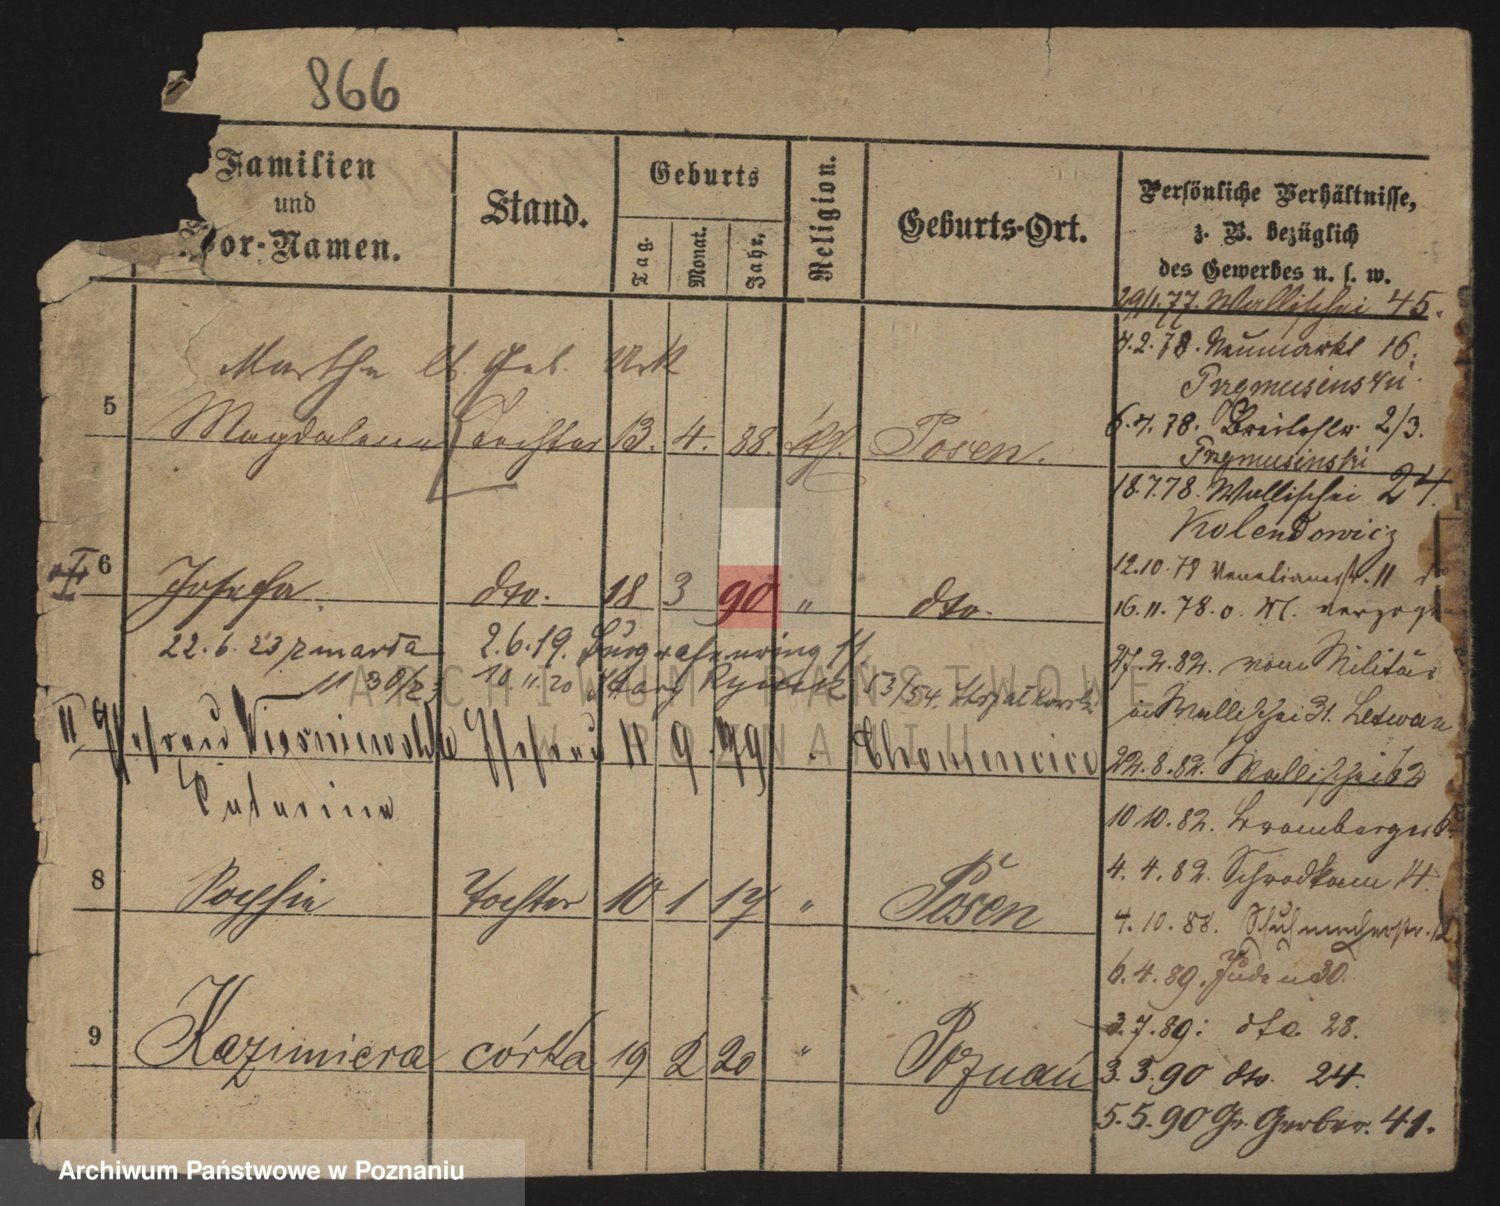 866
Familien
und
Vor-Namen.
Stand.
Geburts
Tag.
Monat.
Jahr.
Religion.
Geburts-Ort.
Persönliche Verhältnisse,
z. B. bezüglich
des Gewerbes u. s. w.
Martha
5 Magdalena Tochter 13. 4. 88. kth. Posen.
6 Josefa dto. 18 3 90 " dto.
22.6.23 zmarła
2.6.19. Burggrafenring 11.
10.11.20 Stary Rynek 53/54.
II Ehefrau Ehefrau 11 9 79
Catarina
8 Sophie Tochter 10 1 17 " Posen
9 Kazimiera córka 19 2 20 " Poznań
29/1.77. Wallischei 45.
4.2.78. Neumarkt 16.
6.4.78. Breitestr. 2/3.
18.7.78. Wallischei 24.
Kolendowicz
12.10.78 Venetianerstr. 11
16.11.78. verzogen
27.2.82. vom Militär
in Wallischei 31.
22.8.82. Wallischei 62
10.10.82. Bromberger
4.4.82. Schrodka 14.
4.10.88. Schuhmacherstr.
6.4.89. Juden 30.
3.7.89: dto 28.
3.3.90 dto. 24.
5.5.90 Gr. Gerber. 41.
ARCHIWUM PAŃSTWOWE
W POZNANIU
Archiwum Państwowe w Poznaniu